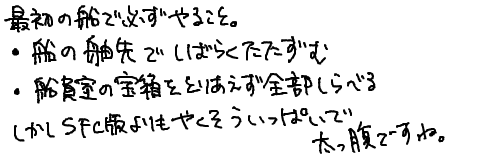 最初の船で必ずやること。
・船の舳先でしばらくたたずむ
・船員室の宝箱をとりあえず全部しらべる
しかしSFC版よりもやくそういっぱいで
太っ腹ですね。